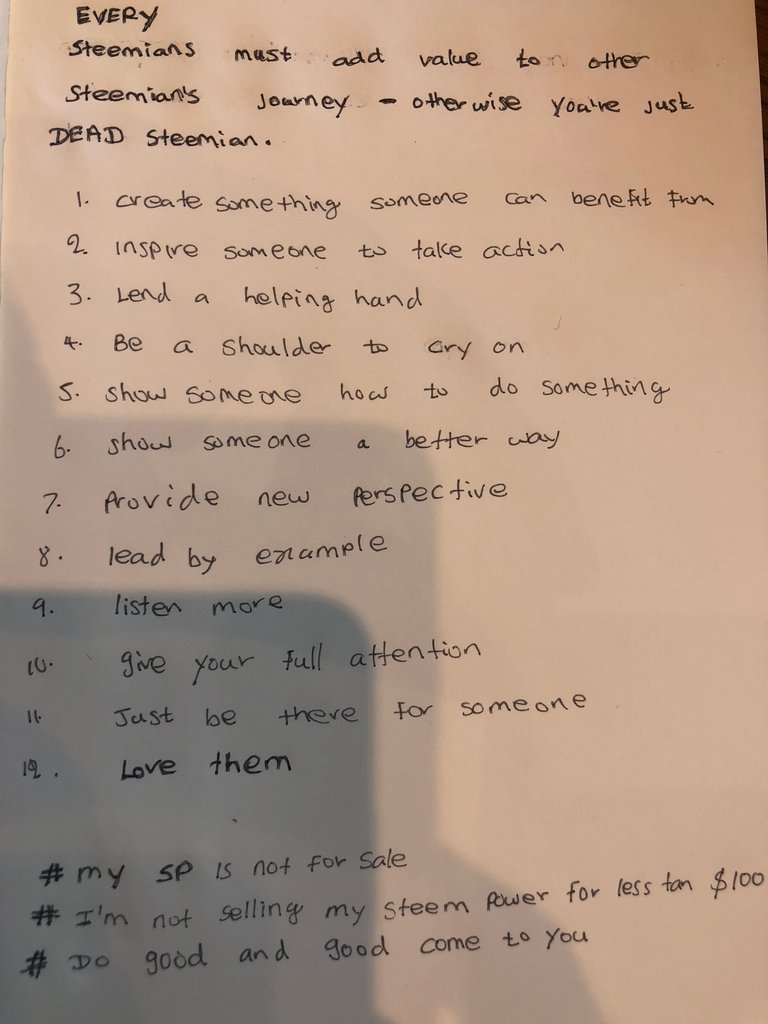 EVERY
Steemians must add value to other
Steemian's Journey - otherwise You're just
DEAD Steemian.
1. create something someone can benefit from
2. inspire someone to take action
3. Lend a helping hand
4. Be a shoulder to cry on
5. show someone how to do something
6. show someone a better way
7. Provide new Perspective
8. lead by example
9. listen more
10. give your full attention
11. Just be there for someone
12. Love them
# my SP is not for sale
# I'm not selling my Steem Power for less tan $100
# Do good and good come to you